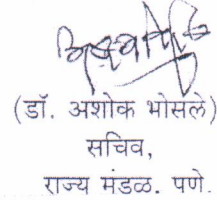 (डॉ. अशोक भोसले)
सचिव,
राज्य मंडळ. पणे.